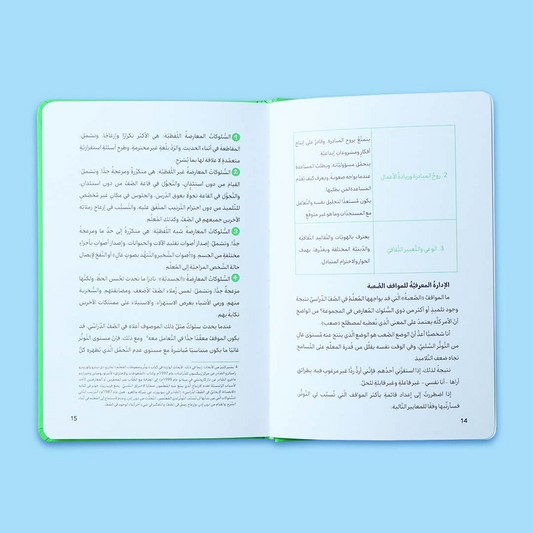 2. روحُ المبادرة وريادة الأعمال
يتمتّع بروح المبادرة، وقادرٌ على إنتاج
أفكارٍ ومشروعاتٍ إبداعيّة
يتحمّل مسؤوليّاته، ويطلب المساعدة
عندما يواجه صعوبة، ويعرف كيف يُقدّم
المساعدة لمن يطلبها
يكون مُستعدًّا لتحليل نفسه والتّعامل
مع المستجدّات وما هو غير متوقّع.
3. الوعي والتّعبير الثّقافي
يعترف بالهويّات والتّقاليد الثّقافيّة
والدّينيّة المختلفة ويقدّرها، بهدف
الحوار والاحترام المتبادل
الإدارةُ المعرفيّةُ للمواقف الصّعبة
ما المواقف «الصّعبة» الّتي قد يواجهها المُعلّم في الصّفّ الدّراسيّ نتيجة
وجود تلميذٍ أو أكثر من ذوي السّلوك المعارض في المجموعة؟ من الواضح
أنّ الأمر كلّه يعتمدُ على المعنى الّذي نُعطيه لمصطلح «صعبة».
أنا شخصيًّا أعدُّ أنّ الوضع الصعب هو الوضع الّذي ينتج عنه مُستوًى عالٍ
من التّوتّر السّلبيّ، وفي الوقت نفسه يقلّل من قُدرة المعلّم على التّسامح
تجاه ضعف التّلاميذ.
نتيجة لذلك، إذا استفزّني أحدُهم، فإنّني أردّ ردًّا غير مرغوب فيه، بطرائق
أراها - أنا نفسي - غير فاعلة وغير قابلةٍ للحلّ.
إذا اضطررتُ إلى إعداد قائمةٍ بأكثر المواقف الّتي تُسبّب لي التّوتّر
فسأرتّبها وفقًا للمعايير التّالية:
14
1 السّلوكاتُ المعارضةُ اللّفظيّة: هي الأكثر تكرارًا وإزعاجًا، وتشمل:
المقاطعة في أثناء الحديث، والرّدّ بلغةٍ غير محترمة، وطرح أسئلة استفزازيّة
متعمّدة لا علاقة لها بما يُشرح.
2 السّلوكاتُ المعارضة غير اللّفظيّة: هي متكرّرة ومزعجةٌ جدًّا، وتشمل:
القيام من دون استئذان، والتّجوّل في قاعة الصّفّ من دون استئذان،
والتّجوّل في القاعة نحوة يعوق الدّرس، والجلوس في مكانٍ غير مُخصّصٍ
للتّلميذ من دون احترام التّرتيب المتّفق عليه، والتّسبّب في إزعاج زملائه
الآخرين جميعهم في الصّفّ وكذلك المُعلّم.
3 السّلوكاتُ المعارضة شبه اللّفظيّة: هي متكرّرةٌ إلى حدٍّ ما ومزعجةٌ
جدًّا، وتشملُ: إصدار أصوات تقليد الآلات والحيوانات، وإصدار أصواتٍ بأجزاء
مختلفة من الجسم، و«أصوات السُّخرية والتّنهّد بصوت عالٍ» أو التّأفّف لإيصال
حالة الشّخص المزاجيّة إلى المُعلّم.
4 السّلوكاتُ المعارضة «الجسديّة»: نادرًا ما تحدث لحسن الحظّ، ولكنّها
مزعجةٌ جدًّا، وتشمل: لمس زُملاء الصّفّ الأضعف، ومضايقتهم، والسّخرية
منهم، ورمي الأشياء بغرض الاستهزاء، والاستيلاء على ممتلكات الآخرين
نكايةً بهم.
عندما يحدث سلوكٌ مثلُ ذلك الموصوف أعلاه في الصّفّ الدّراسيّ، قد
يكون الموقفُ معقّدًا جدًّا في التّعامل معه، ومع ذلك، فإنّ مستوى التّوتّر
غالبًا ما يكون متناسبًا مُباشرة مع مستوى عدم التّحمّل الّذي يُظهرُه كلّ
15